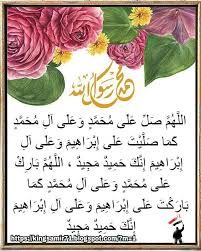 محمد رسول الله
اللَّهُمَّ صَلِّ عَلَى مُحَمَّدٍ وَعَلَى آلِ مُحَمَّدٍ
كَمَا صَلَّيْتَ عَلَى إِبْرَاهِيمَ وَعَلَى آلِ
إِبْرَاهِيمَ إِنَّكَ حَمِيدٌ مَجِيدٌ ، اللَّهُمَّ بَارِكْ
عَلَى مُحَمَّدٍ وَعَلَى آلِ مُحَمَّدٍ كَمَا
بَارَكْتَ عَلَى إِبْرَاهِيمَ وَعَلَى آلِ
إِبْرَاهِيمَ إِنَّكَ حَمِيدٌ مَجِيدٌ
https://kingsamir71.blogspot.com/?m=1